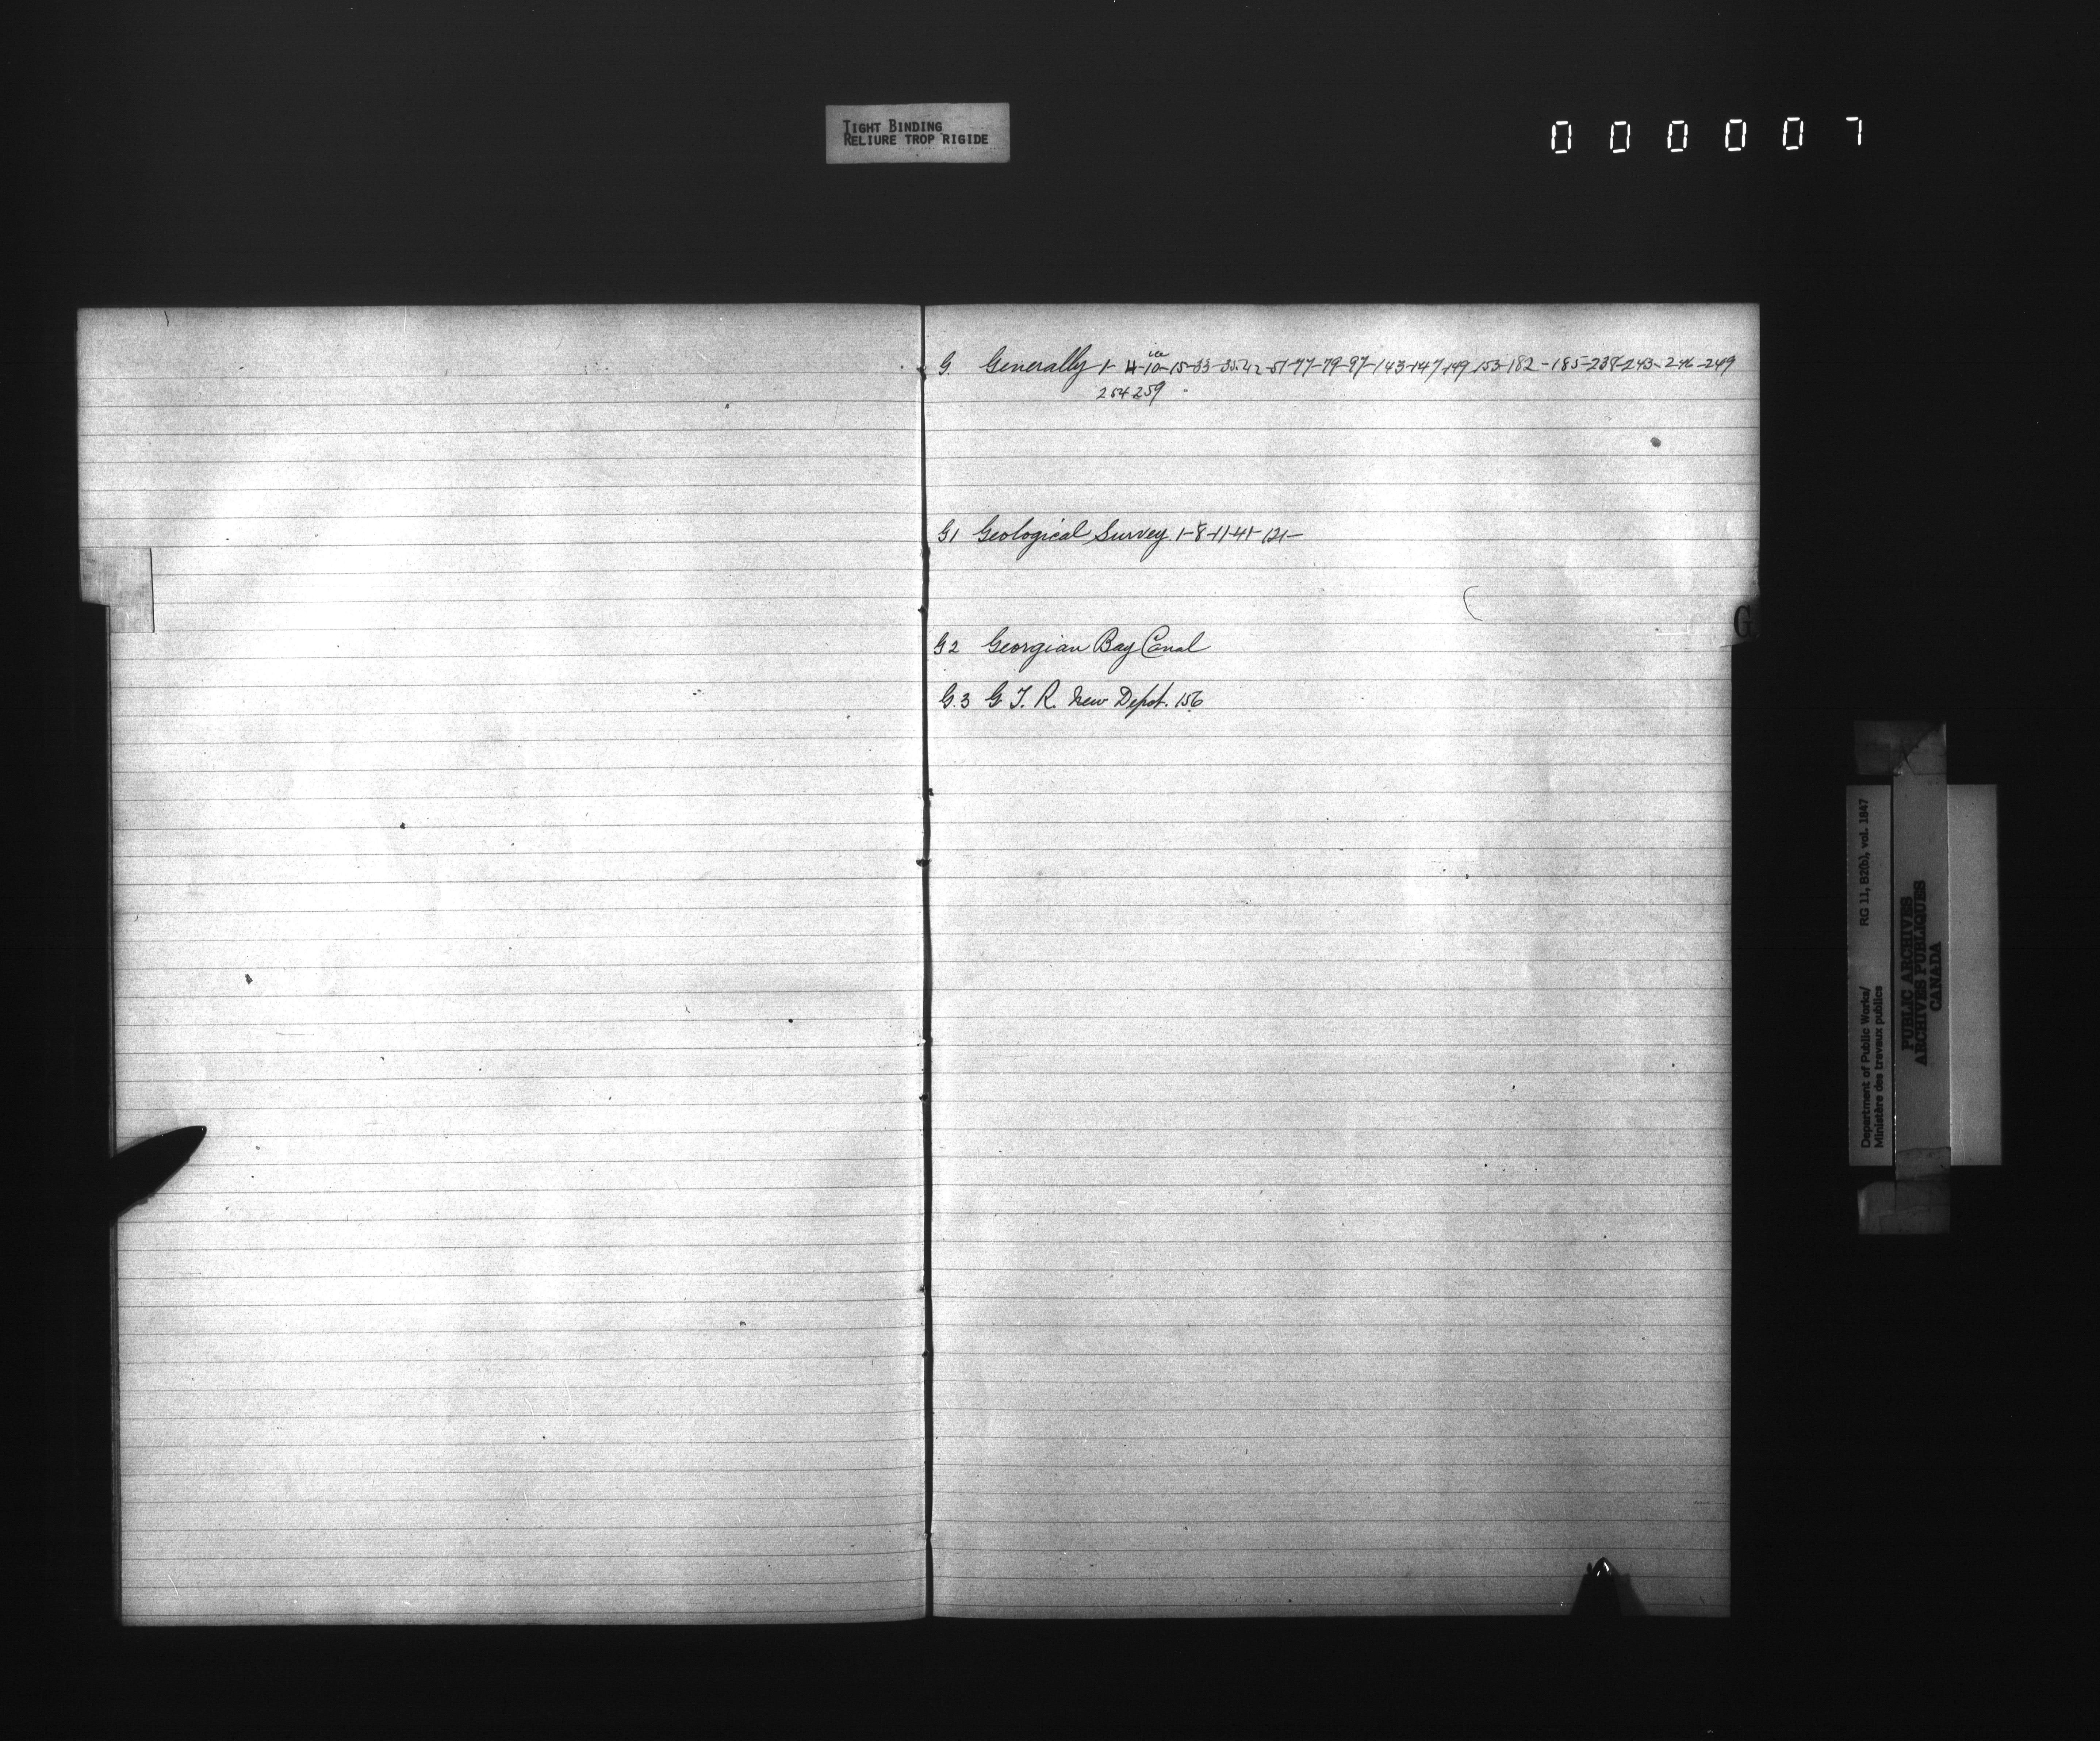 TIGHT BINDING
RELIURE TROP RIGIDE
000007
G. Generally 1-4-10-15-33-35-42-51-77-79-97-143-147-149 153-182-185-238-243-246-249
254-259
G1 Geological Survey. 1-8-11-41-121-
G
G2 Georgian Bay Canal
G.3 G. T. R. New Depot. 156
Department of Public Works/ RG 11, B2(b), vol. 1847
Ministère des travaux publics
PUBLIC ARCHIVES
ARCHIVES PUBLIQUES
CANADA